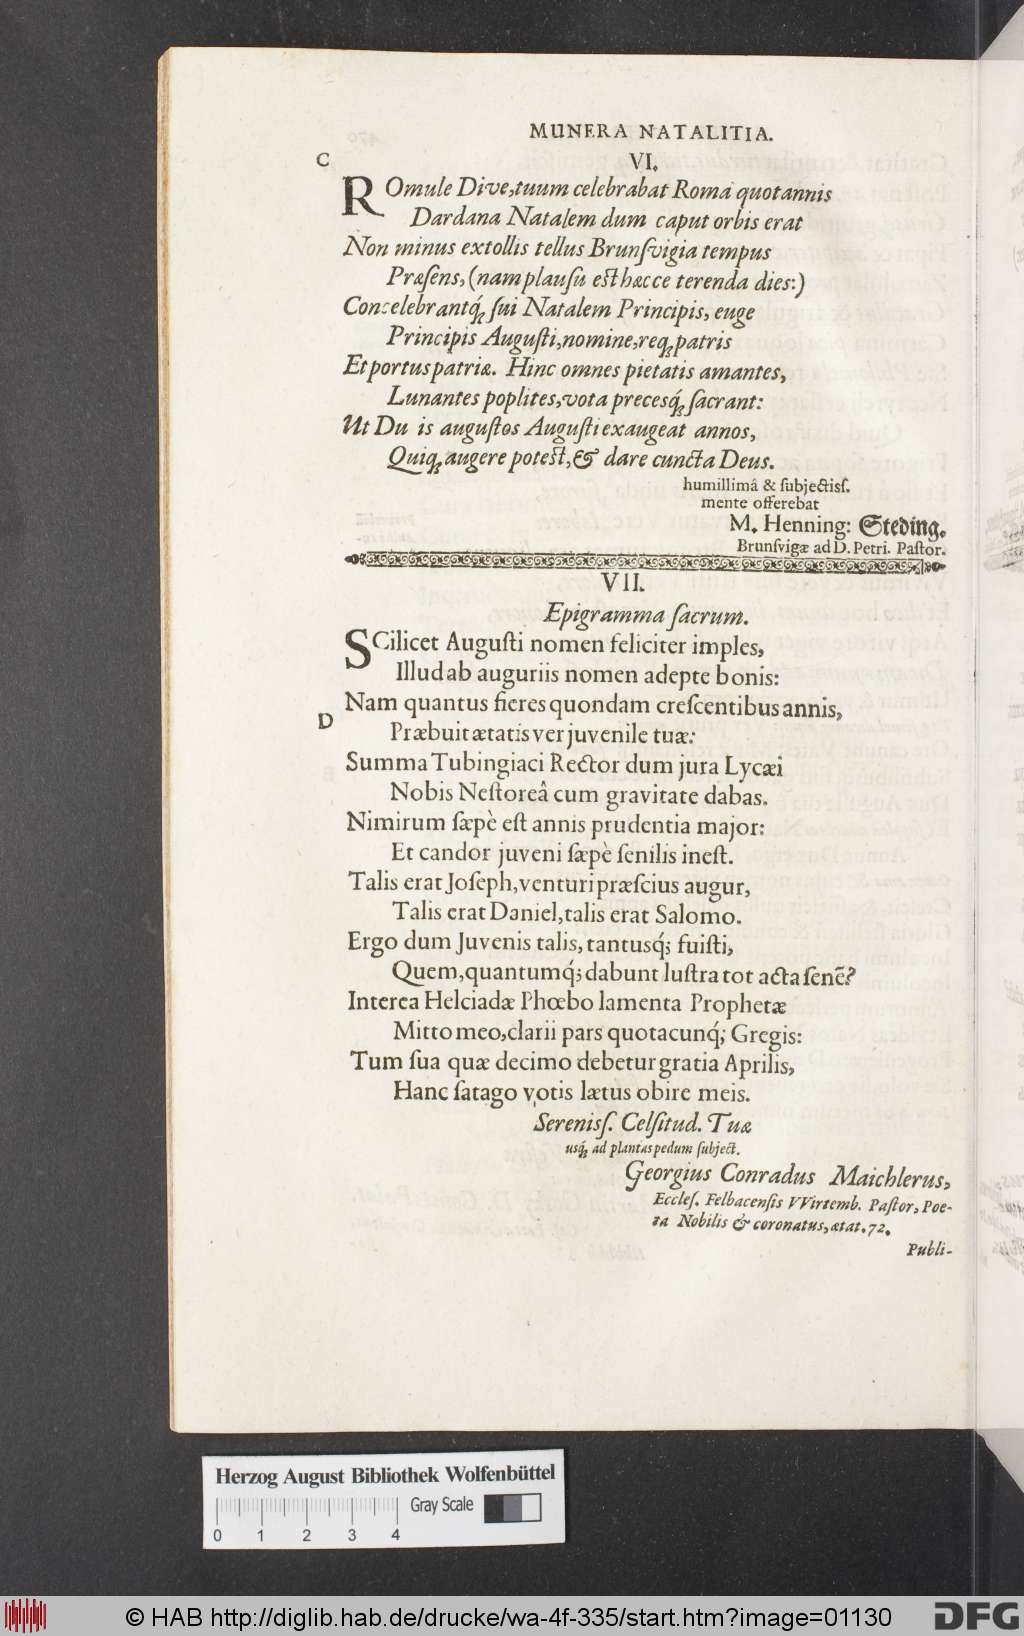 MUNERA NATALITIA.
C
VI.
ROmule Dive, tuum celebrabat Roma quotannis
Dardana Natalem dum caput orbis erat
Non minus extollis tellus Brunſvigia tempus
Præſens, (nam plauſu eſt hæcce terenda dies:)
Concelebrantq́; ſui Natalem Principis, euge
Principis Auguſti, nomine, req; patris
Et portus patriæ. Hinc omnes pietatis amantes,
Lunantes poplites, vota precesq́; ſacrant:
Ut Du is auguſtos Auguſti exaugeat annos,
Quiq; augere poteſt, & dare cuncta Deus.
humillimâ & ſubjectiſſ.
mente offerebat
M. Henning: Steding.
Brunſvigæ ad D. Petri. Paſtor.
VII.
Epigramma ſacrum.
SCilicet Auguſti nomen feliciter imples,
Illud ab auguriis nomen adepte bonis:
Nam quantus fieres quondam creſcentibus annis,
D
Præbuit ætatis ver juvenile tuæ:
Summa Tubingiaci Rector dum jura Lycæi
Nobis Neſtoreâ cum gravitate dabas.
Nimirum ſæpè eſt annis prudentia major:
Et candor juveni ſæpè ſenilis ineſt.
Talis erat Joſeph, venturi præſcius augur,
Talis erat Daniel, talis erat Salomo.
Ergo dum Juvenis talis, tantusq́; fuiſti,
Quem, quantumq́; dabunt luſtra tot acta ſenē?
Interea Helciadæ Phœbo lamenta Prophetæ
Mitto meo, clarii pars quotacunq́; Gregis:
Tum ſua quæ decimo debetur gratia Aprilis,
Hanc ſatago votis lætus obire meis.
Sereniſſ. Celſitud. Tuæ
usq́; ad plantas pedum ſubject.
Georgius Conradus Maichlerus,
Eccleſ. Felbacenſis VVirtemb. Paſtor, Poe-
ta Nobilis & coronatus, ætat. 72.
Publi-
Herzog August Bibliothek Wolfenbüttel
Gray Scale
0 1 2 3 4
© HAB http://diglib.hab.de/drucke/wa-4f-335/start.htm?image=01130
DFG